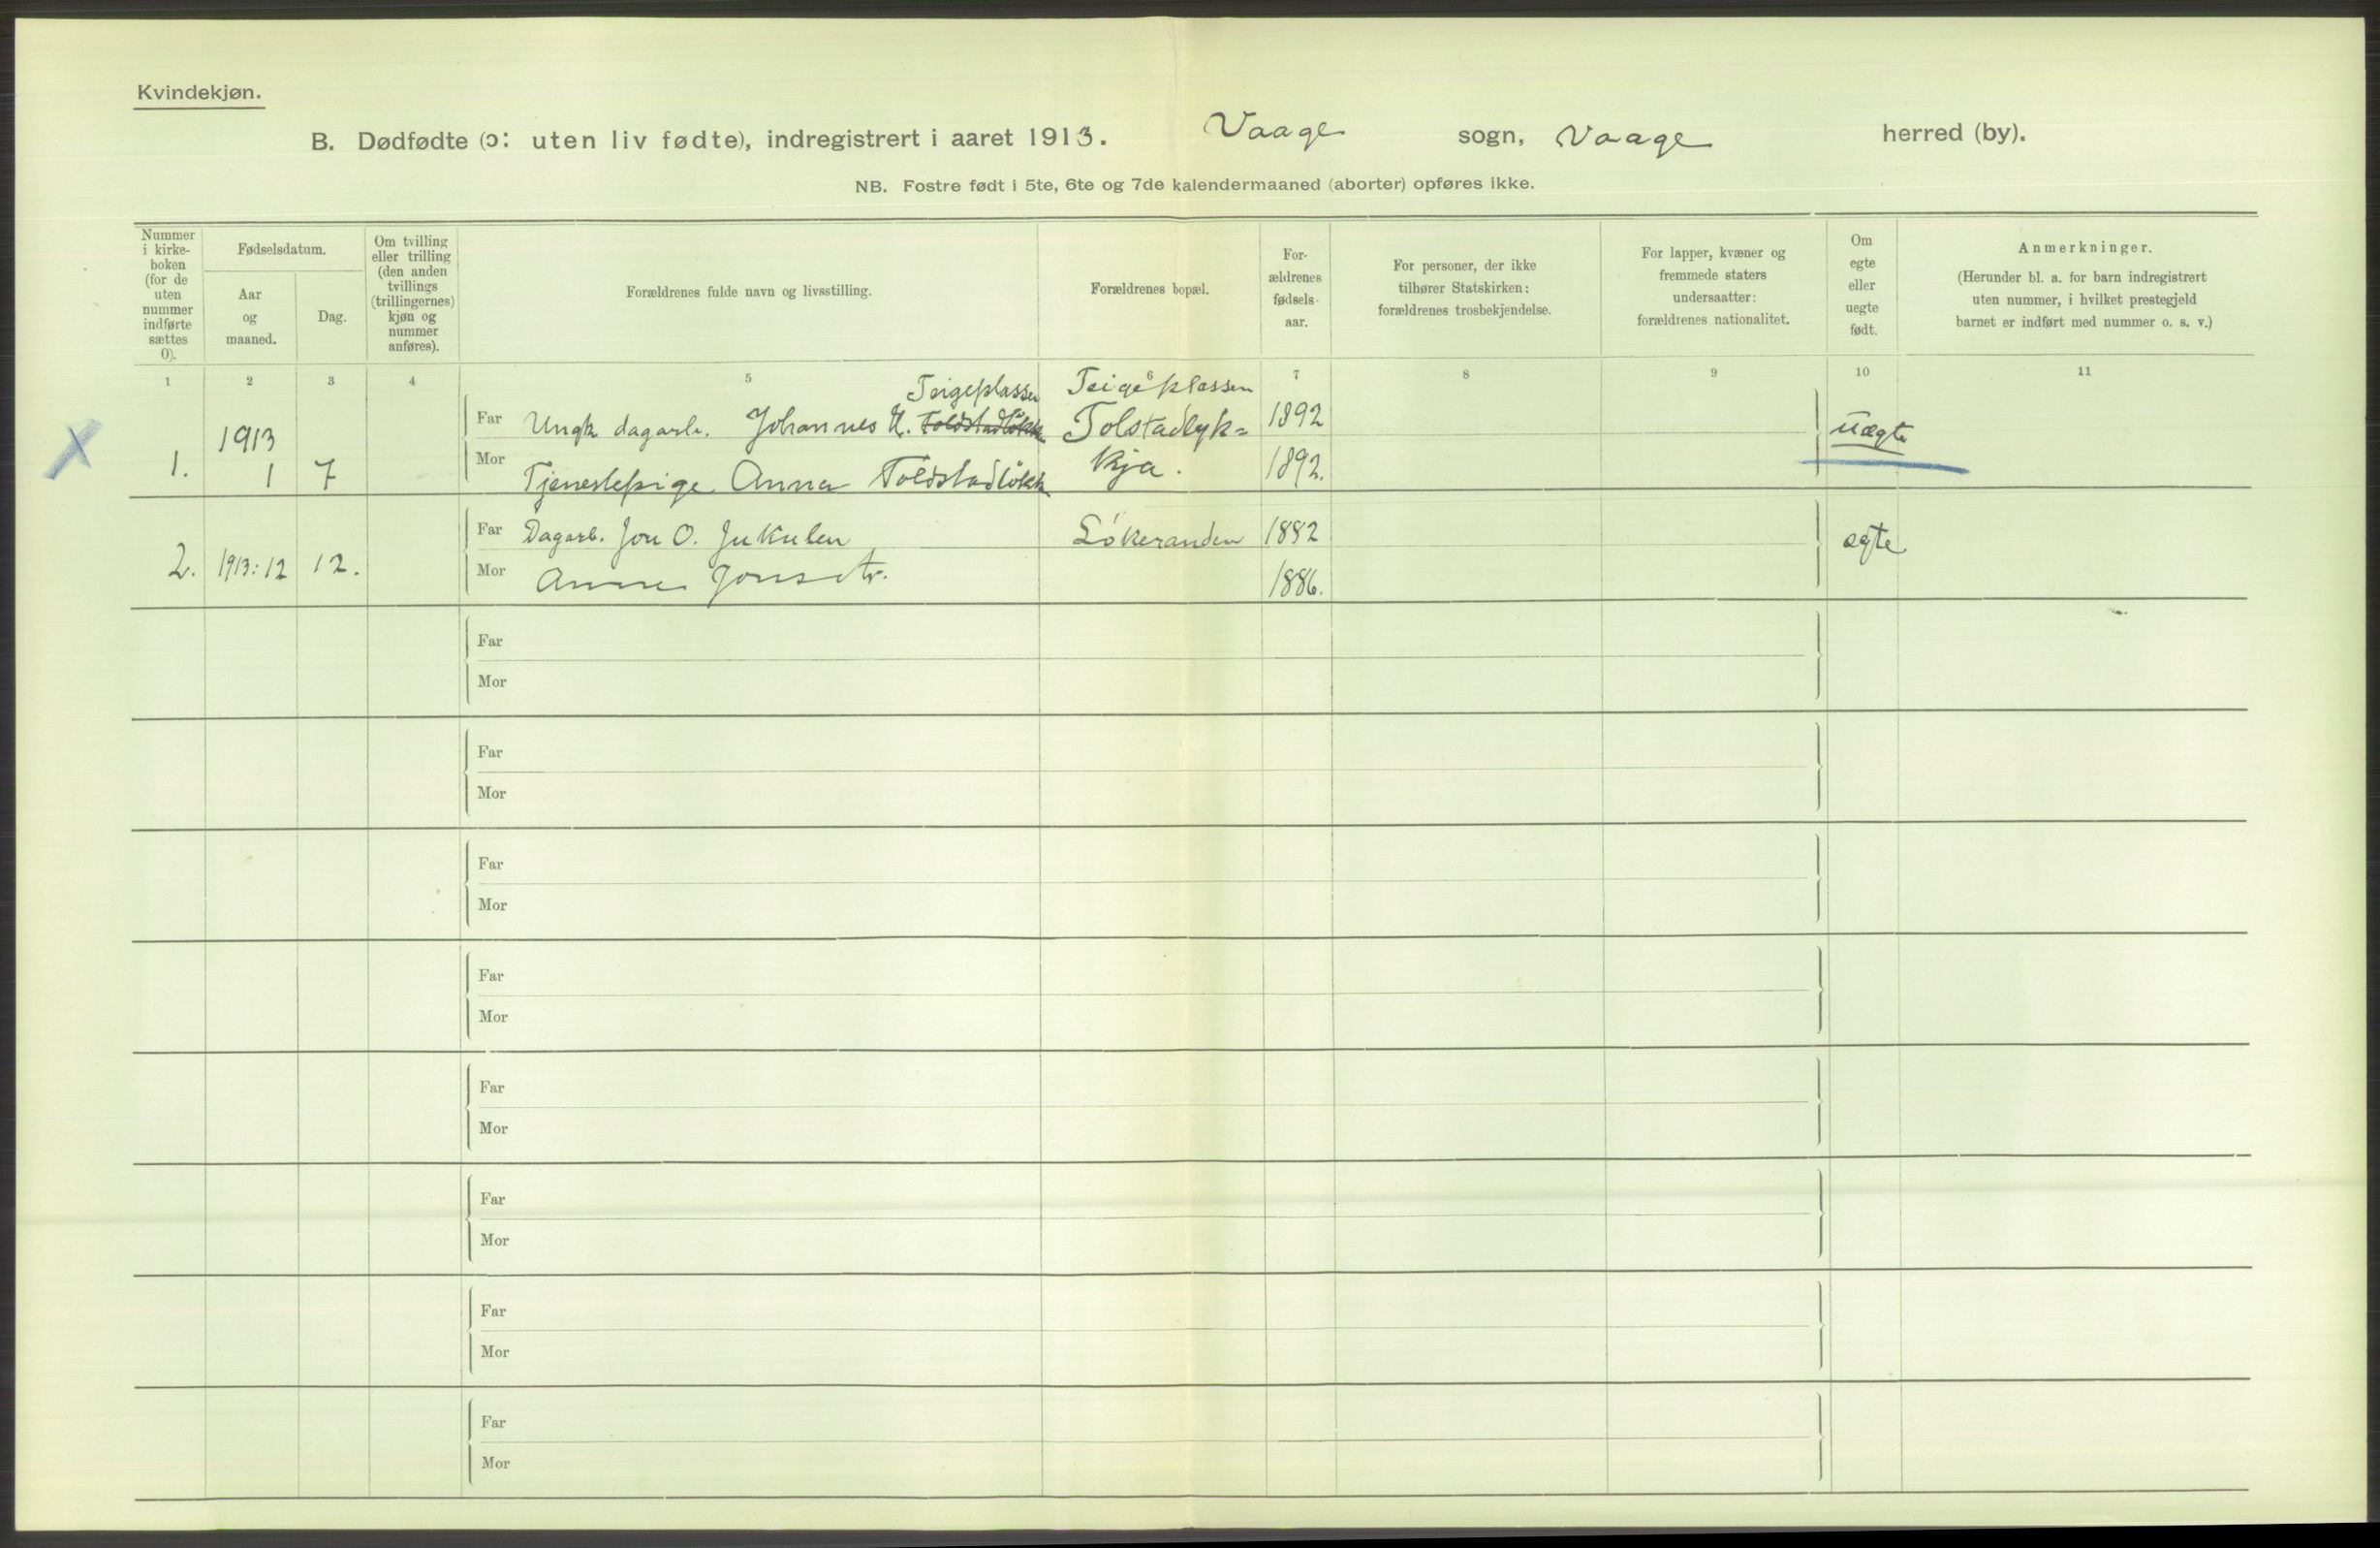 Kvindekjøn.
B. Dødfødte (ɔ: uten liv fødte), indregistrert i aaret 1913. Vaage sogn, Vaage herred (by).
NB. Fostre født i 5te, 6te og 7de kalendermaaned (aborter) opføres ikke.
Nummer i kirke-boken (for de uten nummer indførte sættes 0).
Fødselsdatum.
Aar og maaned.
Dag.
Om tvilling eller trilling (den anden tvillings (trillingernes) kjøn og nummer anføres).
Forældrenes fulde navn og livsstilling.
Forældrenes bopæl.
For-ældrenes fødsels-aar.
For personer, der ikke tilhører Statskirken: forældrenes trosbekjendelse.
For lapper, kvæner og fremmede staters undersaatter: forældrenes nationalitet.
Om egte eller uegte født.
Anmerkninger.
(Herunder bl. a. for barn indregistrert uten nummer, i hvilket prestegjeld barnet er indført med nummer o. s. v.)
1 2 3 4 5 6 7 8 9 10 11
Teigeplassen Teigeplassen
X 1913 Far Ungk. dagarb. Johannes H. Toldstadløkk Tolstadlyk= 1892 uægte
1. 1 7 Mor Tjenestepige Anna Toldstadløkk kja. 1892.
Far Dagarb. Jon O. Jukulen Løkeranden 1882 egte
2. 1913: 12 12. Mor Anne Jonsdtr. 1886.
Far
Mor
Far
Mor
Far
Mor
Far
Mor
Far
Mor
Far
Mor
Far
Mor
Far
Mor